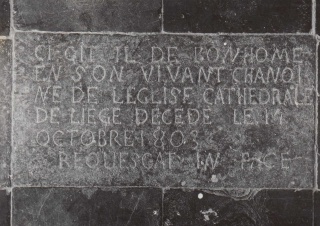 CI GIT IL DE BONHOME
EN SON VIVANT CHANOI
NE DE LEGLISE CATHEDRALE
DE LIEGE DECEDE LE
OCTOBRE 1803
REQUIESCAT IN PACE